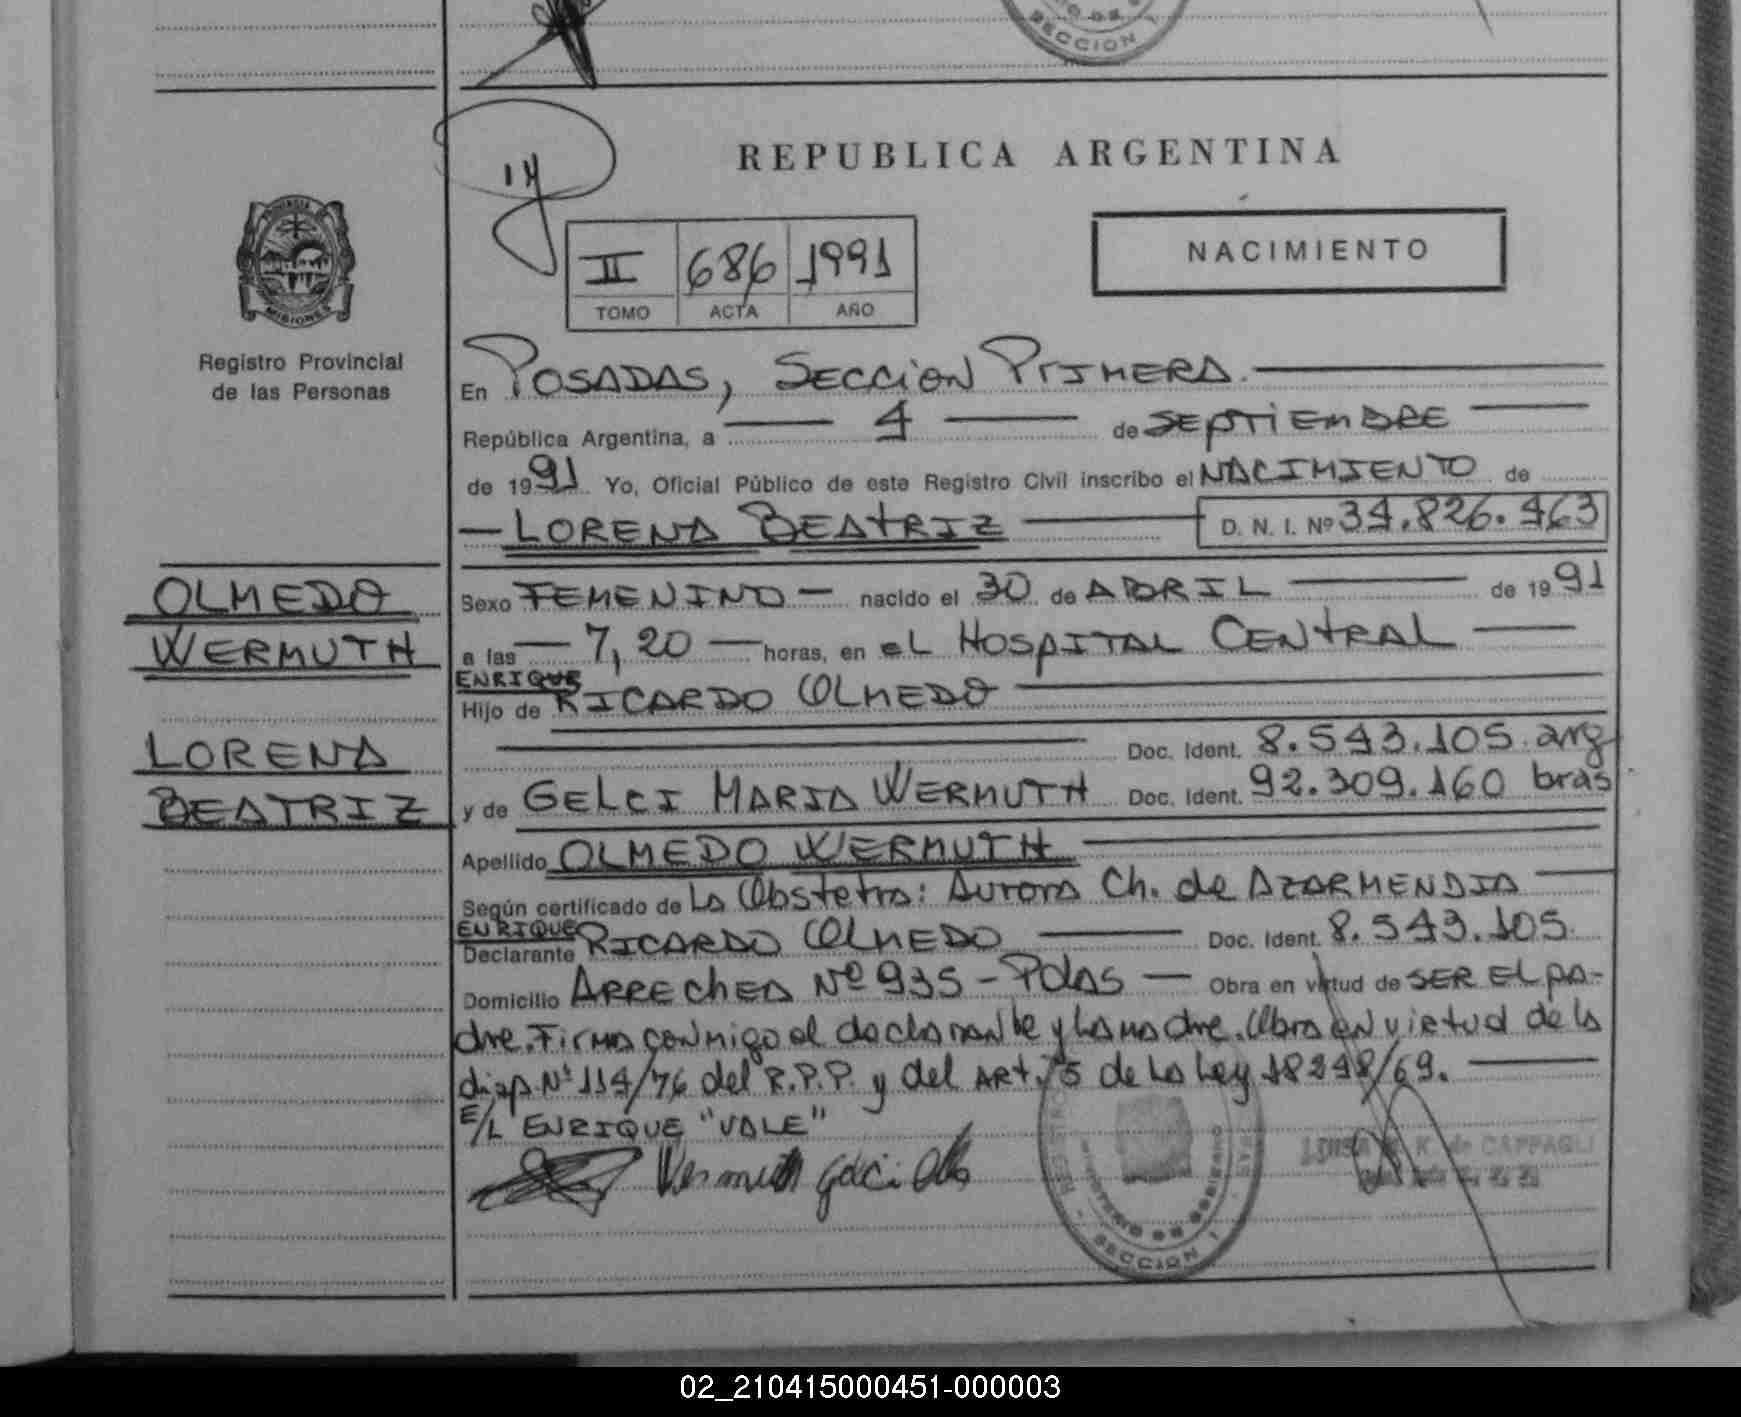 SECCION 1
REPUBLICA ARGENTINA
NACIMIENTO
II 686 1991
TOMO ACTA AÑO
PROVINCIA
MISIONES
Registro Provincial
de las Personas
En POSADAS, SECCION PRIMERA.
República Argentina, a 4 de SEPTIEMBRE
de 1991 Yo, Oficial Público de este Registro Civil inscribo el NACIMIENTO de
LORENA BEATRIZ D. N. I. Nº 34.826.463
OLMEDO
WERMUTH
LORENA
BEATRIZ
Sexo FEMENINO nacido el 30 de ABRIL de 1991
a las 7,20 horas, en el HOSPITAL CENTRAL
ENRIQUE
Hijo de RICARDO OLMEDO
Doc. Ident. 8.543.105 arg
y de GELCI MARIA WERMUTH Doc. Ident. 92.309.160 bras
Apellido OLMEDO WERMUTH
Según certificado de La Obstetra: Aurora Ch. de AZARMENDIA
ENRIQUE
Declarante RICARDO OLMEDO Doc. Ident. 8.543.105
Domicilio ARRECHEA Nº 935 - Pdas Obra en virtud de SER EL PA-
dre. Firma conmigo el declarante y la madre. Obra en virtud de la
disp. Nº 114/76 del R.P.P. y del Art. 5 de la Ley 18248/69.
E/L ENRIQUE "VALE"
Wermuth
SECCION 1
K. de CAPPAGLI
02_210415000451-000003